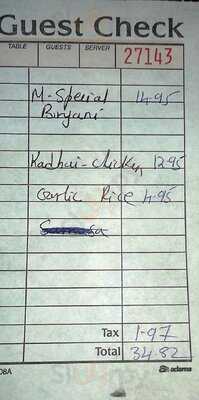 Guest Check
TABLE GUESTS SERVER 27143
M-Special 14.95
Biryani
Kadhai-chicken 12.95
Garlic Rice 4.95
Samosa
Tax 1-97
Total 34.82
08A adams